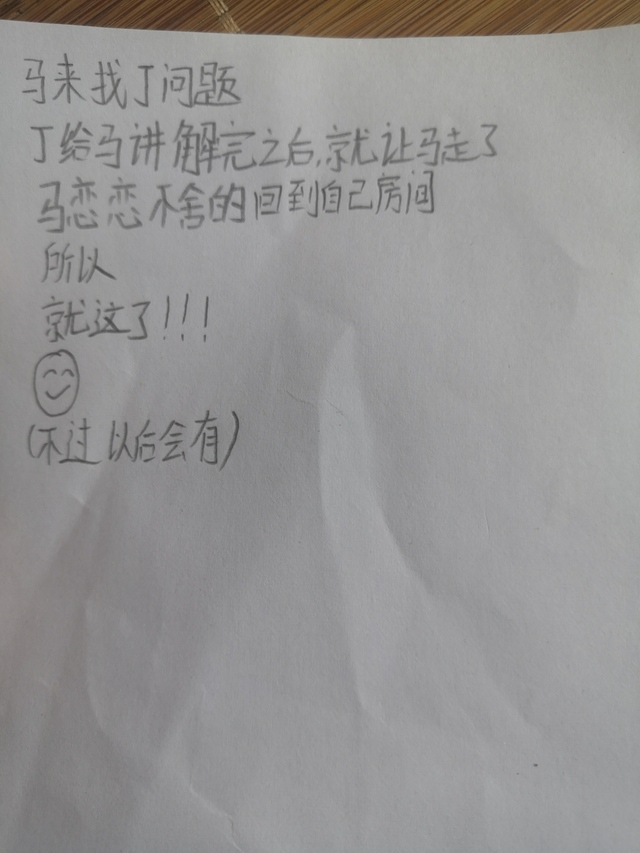 马来找丁问题
丁给马讲解完之后,就让马走了
马恋恋不舍的回到自己房间
所以
就这了!!!
(不过以后会有)